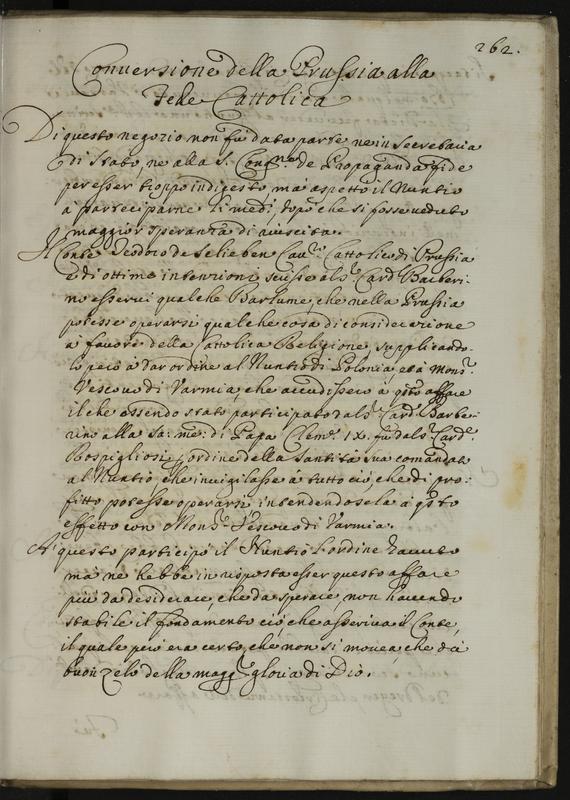 262.
Conversione della Prussia alla
Fede Cattolica
Di questo negozio non fù data parte ne in Secretaria
di Stato, ne alla S. Cong.ne de Propaganda fide
per esser troppo indigesto, mà aspettò il Nuntio
à parteciparne li med.i, dopò che si fosse veduto
maggior speranza di riuscita.
Il Conte Teodoro de Schlieben Cau.re Cattolico di Prussia
e di ottime intenzioni scrisse al S.r Card. Barberi-
no esserui qualche Barlume, che nella Prussia
potesse operarsi qualche cosa di considerazione
à fauore della Cattolica Religione, supplicando-
lo però à dar ordine al Nuntio di Polonia, et à Mons.r
Vescouo di Varmia, che accudissero à q.sto affare
il che essendo stato participato dal S.r Card. Barbe-
rino alla Sa: me: di Papa Clem.e IX. fù dal S.r Card.e
Rospigliosi p ordine della Santità sua comandato
al Nuntio, che inuigilasse à tutto ciò, che di pro-
fitto potesse operarsi, intendendosela à q.sto
effetto con Mons.r Vescouo di Varmia.
A' questo participò il Nuntio l'ordine hauuto
mà ne hebbe in risposta esser questo affare
più da desiderare, che da sperare, non hauendo
stabile il fondamento ciò, che asseriua il Conte,
il quale però era certo, che non si mouea, che dà
buon zelo della magg.r gloria di Dio.